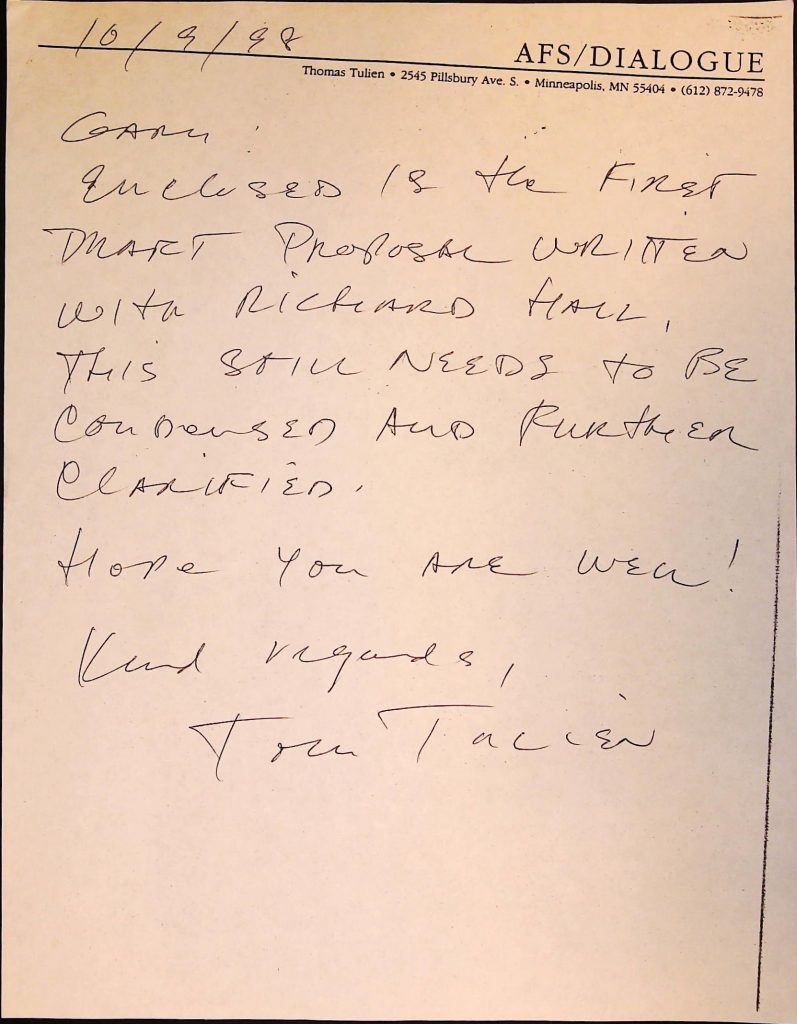 10/9/98
AFS/DIALOGUE
Thomas Tulien • 2545 Pillsbury Ave. S. • Minneapolis, MN 55404 • (612) 872-9478
GARY:
ENCLOSED IS the FIRST
DRAFT PROPOSAL WRITTEN
WITH RICHARD HALL,
THIS STILL NEEDS to BE
CONDENSED AND FURTHER
CLARIFIED.
HOPE YOU ARE WELL!
Kind regards,
Tom TULIEN